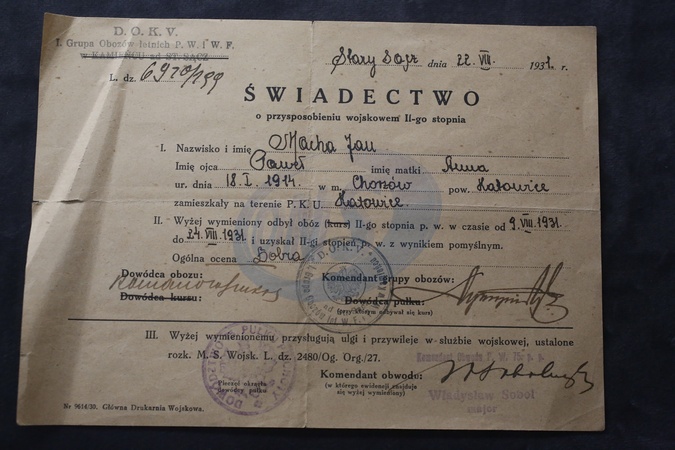 D. O. K. V.
I. Grupa Obozów letnich P. W. i W. F.
w KAMIEŃCU ad ST. SĄCZ
Stary Sącz dnia 22. VIII. 1931. r.
L. dz. 6920/199
ŚWIADECTWO
o przysposobieniu wojskowem II-go stopnia
I. Nazwisko i imię Macha Jan
Imię ojca Paweł imię matki Anna
ur. dnia 18. I. 1914. w m. Chorzów pow. Katowice
zamieszkały na terenie P. K. U. Katowice.
II. Wyżej wymieniony odbył obóz (kurs) II-go stopnia p. w. w czasie od 9. VIII. 1931.
do 24. VIII. 1931. i uzyskał II-gi stopień p. w. z wynikiem pomyślnym.
Ogólna ocena Dobra
Dowódca obozu: Komendant grupy obozów:
Dowódca kursu: Dowódca pułku:
(przy którym odbywał się kurs)
D. O. K. V.
III. Wyżej wymienionemu przysługują ulgi i przywileje w służbie wojskowej, ustalone
rozk. M. S. Wojsk. L. dz. 2480/Og. Org./27.
Pieczęć okrągła
dowódcy pułku
Komendant obwodu:
(w którego ewidencji znajduje
się wyżej wymieniony)
Władysław Sobol
major
Nr 9614/30. Główna Drukarnia Wojskowa.